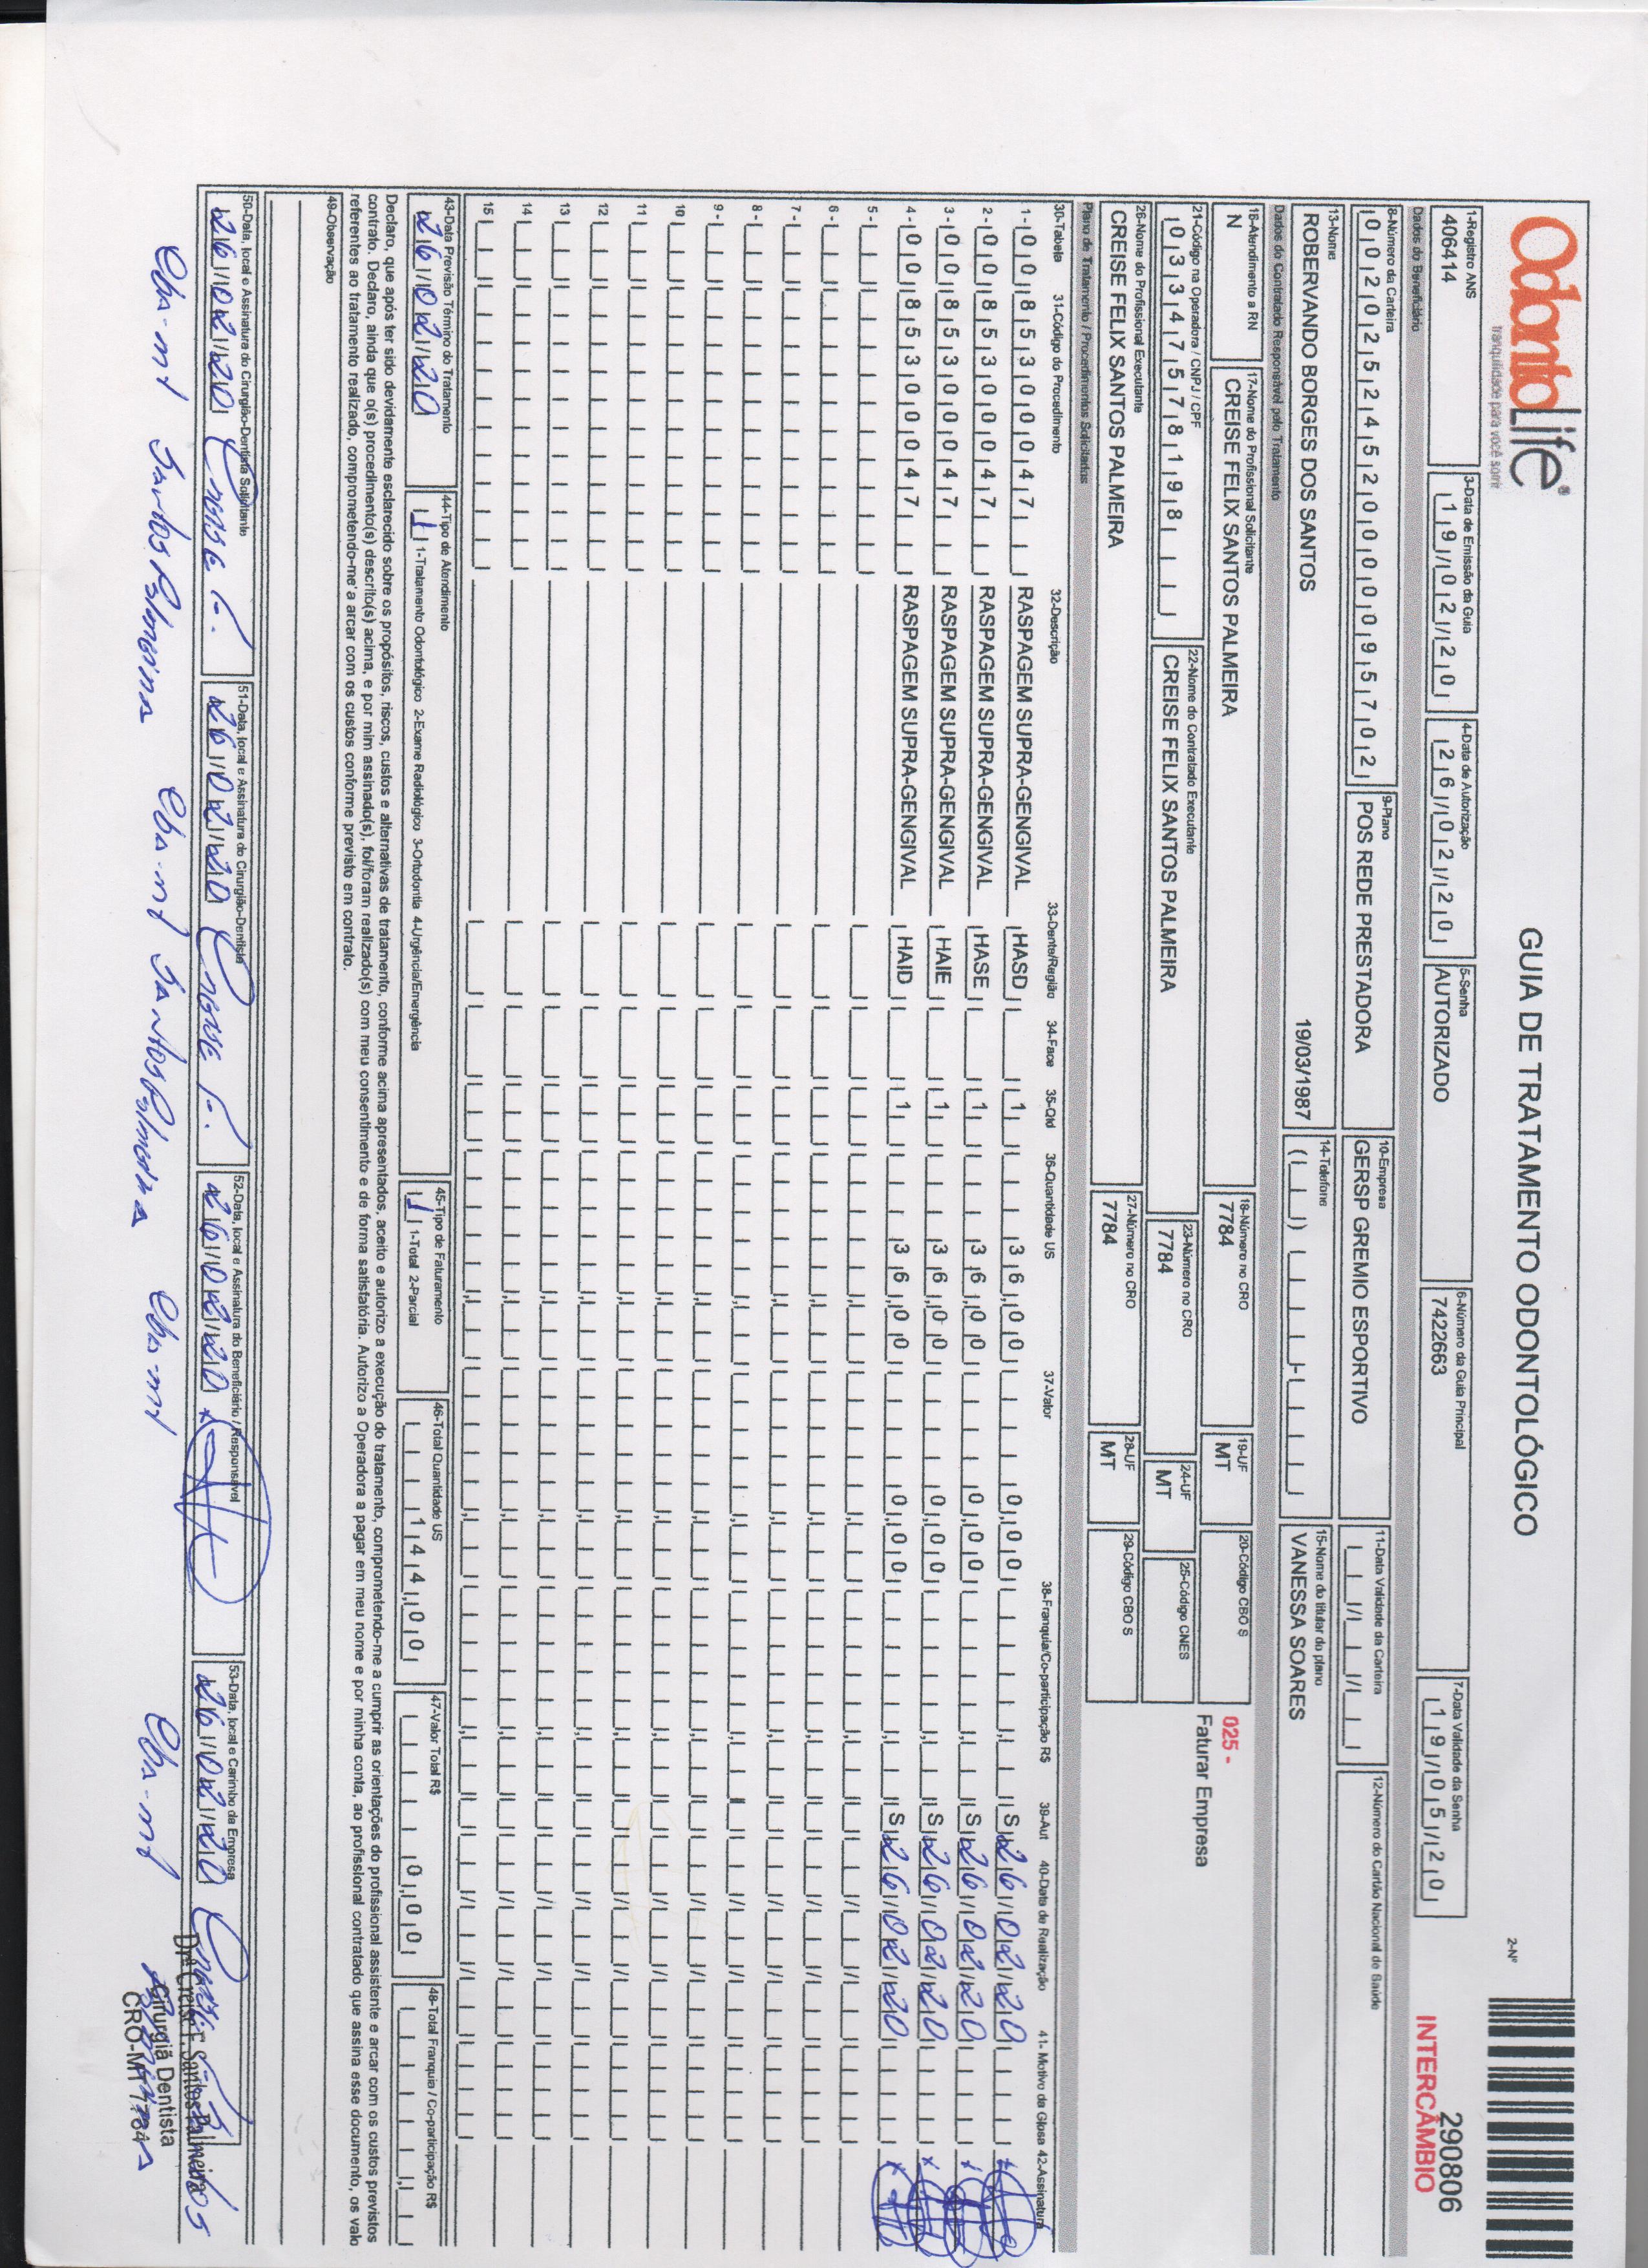 OdontoLife®
tranquilidade para você sorrir
GUIA DE TRATAMENTO ODONTOLÓGICO
2-Nº
290806
INTERCÂMBIO
1-Registro ANS
406414
3-Data de Emissão da Guia
19/02/20
4-Data de Autorização
26/02/20
5-Senha
AUTORIZADO
6-Número da Guia Principal
7422663
7-Data Validade da Senha
19/05/20
Dados do Beneficiário
8-Número da Carteira
00202524520000095702
9-Plano
POS REDE PRESTADORA
10-Empresa
GERSP GREMIO ESPORTIVO
11-Data Validade da Carteira
12-Número do Cartão Nacional de Saúde
13-Nome
ROBERVANDO BORGES DOS SANTOS 19/03/1987
14-Telefone
15-Nome do titular do plano
VANESSA SOARES
Dados do Contratado Responsável pelo Tratamento
16-Atendimento a RN
N
17-Nome do Profissional Solicitante
CREISE FELIX SANTOS PALMEIRA
18-Número no CRO
7784
19-UF
MT
20-Código CBO S
025 -
Faturar Empresa
21-Código na Operadora / CNPJ / CPF
03347578198
22-Nome do Contratado Executante
CREISE FELIX SANTOS PALMEIRA
23-Número no CRO
7784
24-UF
MT
25-Código CNES
26-Nome do Profissional Executante
CREISE FELIX SANTOS PALMEIRA
27-Número no CRO
7784
28-UF
MT
29-Código CBO S
Plano de Tratamento / Procedimentos Solicitados
30-Tabela 31-Código do Procedimento 32-Descrição 33-Dente/Região 34-Face 35-Qtd 36-Quantidade US 37-Valor 38-Franquia/Co-participação R$ 39-Aut 40-Data de Realização 41- Motivo da Glosa 42-Assinatura
1- 00 85300047 RASPAGEM SUPRA-GENGIVAL HASD 1 36,00 0,00 S 26/02/20
2- 00 85300047 RASPAGEM SUPRA-GENGIVAL HASE 1 36,00 0,00 S 26/02/20
3- 00 85300047 RASPAGEM SUPRA-GENGIVAL HAIE 1 36,00 0,00 S 26/02/20
4- 00 85300047 RASPAGEM SUPRA-GENGIVAL HAID 1 36,00 0,00 S 26/02/20
5-
6-
7-
8-
9-
10
11
12
13
14
15
43-Data Previsão Término do Tratamento
26/02/20
44-Tipo de Atendimento
1 1-Tratamento Odontológico 2-Exame Radiológico 3-Ortodontia 4-Urgência/Emergência
45-Tipo de Faturamento
1 1-Total 2-Parcial
46-Total Quantidade US
144,00
47-Valor Total R$
0,00
48-Total Franquia / Co-participação R$
Declaro, que após ter sido devidamente esclarecido sobre os propósitos, riscos, custos e alternativas de tratamento, conforme acima apresentados, aceito e autorizo a execução do tratamento, comprometendo-me a cumprir as orientações do profissional assistente e arcar com os custos previstos
contrato. Declaro, ainda que o(s) procedimento(s) descrito(s) acima, e por mim assinado(s), foi/foram realizado(s) com meu consentimento e de forma satisfatória. Autorizo a Operadora a pagar em meu nome e por minha conta, ao profissional contratado que assina esse documento, os valo
referentes ao tratamento realizado, comprometendo-me a arcar com os custos conforme previsto em contrato.
49-Observação
50-Data, local e Assinatura do Cirurgião-Dentista Solicitante
26/02/20 Creise F.
51-Data, local e Assinatura do Cirurgião-Dentista
26/02/20 Creise F.
52-Data, local e Assinatura do Beneficiário / Responsável
26/02/20
53-Data, local e Carimbo da Empresa
26/02/20
Cba-mt Santos Palmeira Cba-mt Santos Palmeira Cba-mt Cba-mt
Drª Creise F. Santos Palmeira
Cirurgiã Dentista
CRO-MT 7784